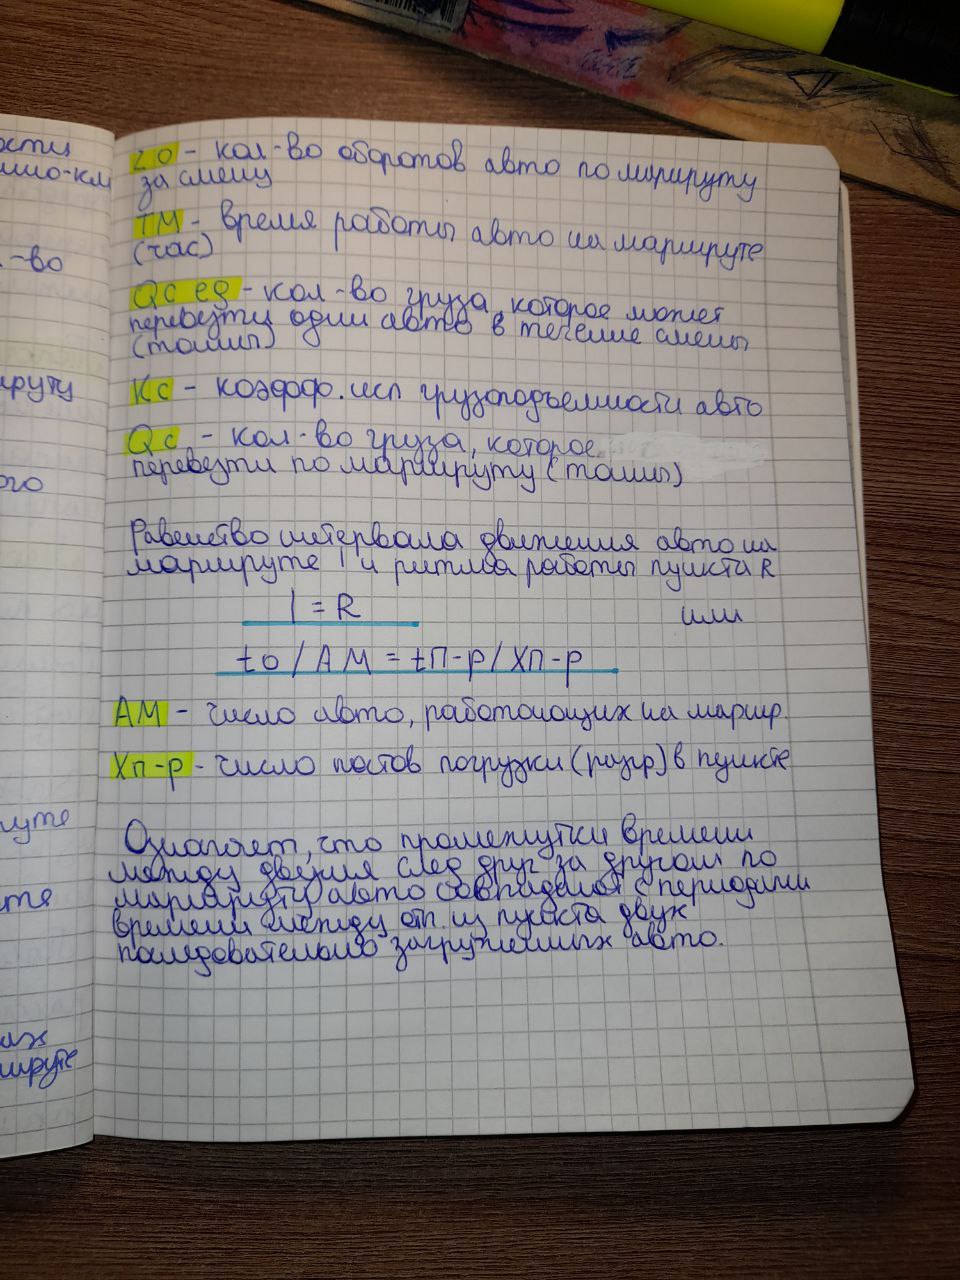 ости
мино-км
.-во
руту
ого
уте
тя
их
шруте
Zо - кол-во оборотов авто по маршруту
за смену
TM - время работы авто на маршруте
(час)
Qс ед - кол-во груза, которое может
перевезти один авто в течение смены
(тонны)
Кс - коэфф. исп грузоподъемности авто
Qс - кол-во груза, которое
перевезти по маршруту (тонны)
Равенство интервала движения авто на
маршруте I и ритма работы пункта R
I = R или
to / AM = tп-р / Xп-р
АМ - число авто, работающих на маршр.
Хп-р - число постов погрузки (разгр) в пункте
Означает, что промежутки времени
между двумя след друг за другом по
маршруту авто совпадают с периодами
времени между отп. из пункта двух
последовательно загруженных авто.